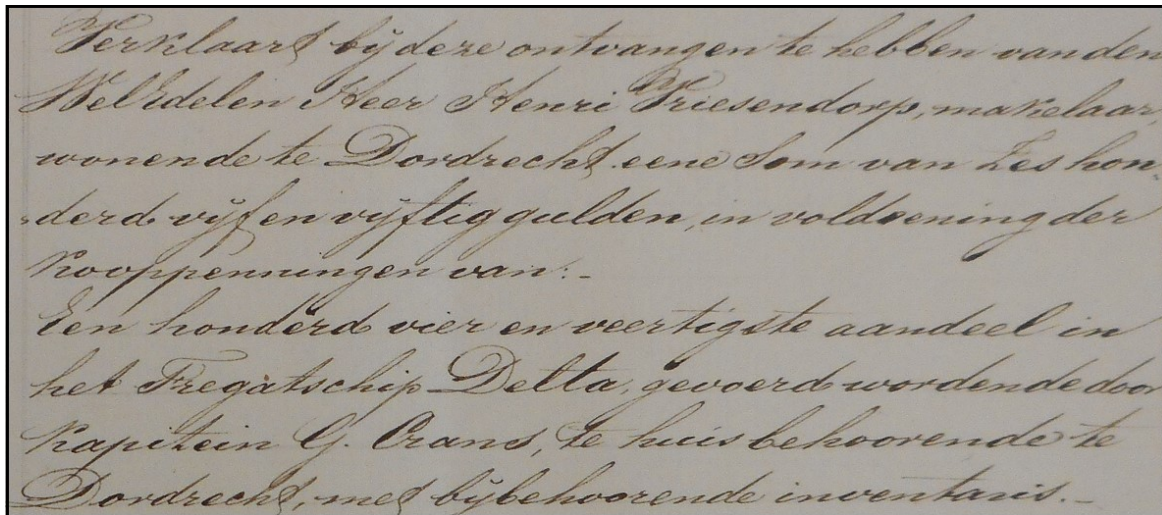 Verklaart bij deze ontvangen te hebben van den
WelEdelen Heer Henri Vriesendorp, makelaar,
wonende te Dordrecht eene Som van Zes hon-
derd vijf en vijftig gulden, in voldoening der
Kooppenningen van:-
Een honderd vier en veertigste aandeel in
het Fregatschip Delta, gevoerd wordende door
Kapitein G. Crans, te huis behoorende te
Dordrecht, met bijbehoorende inventaris.-